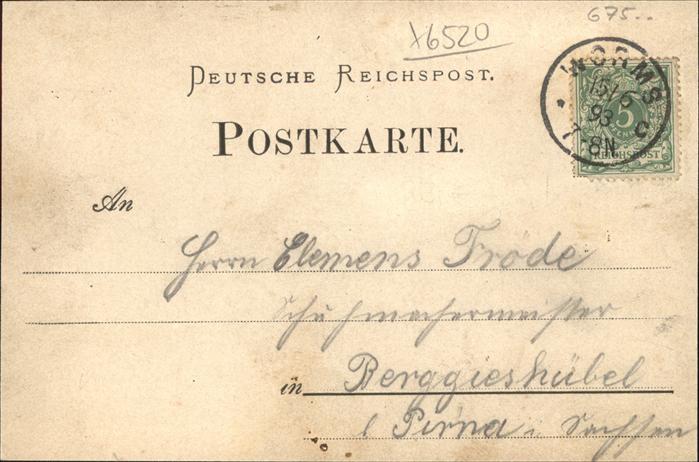 675..
x6520
WORMS
15/6
93
7-8N
C
5
REICHSPOST
DEUTSCHE REICHSPOST.
POSTKARTE.
An
Herrn Clemens Frode
Schuhmachermeister
in Berggieshübel
b Pirna i. Sachsen